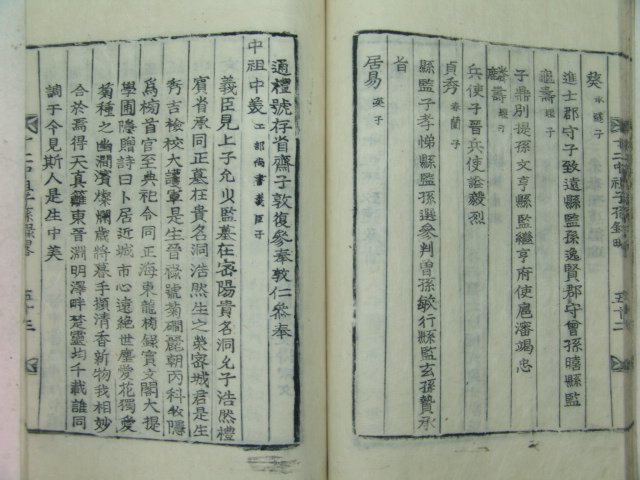 葵 永護子
進士郡守子致遠縣監孫逸賢郡守曾孫暿縣監
龜壽 理子
子鼎別提孫文亨縣監繼亨府使扈藩竭忠
麟壽 理子
兵使子晉兵使諡毅烈
貞秀 春蘭子
縣監子孝悌縣監孫選參判曾孫敏行縣監玄孫贊承
旨
居易 英子
通禮號存省齋子敦復參奉敦仁參奉
中祖中美 工部尚書義臣子
義臣見上子允少監墓在密陽貴名洞允子浩然禮
賓省承同正墓在貴名洞浩然生之榮密城君是生
秀吉檢校大護軍是生晉祿號菊磵麗朝丙科牧隱
爲榜首官至典祀令同正海東龍榜錄寶文閣大提
學圃隱贈詩曰卜居近城市心遠絕世塵愛花獨愛
菊種之幽澗濱燦爛歲將暮手擷清香新物我相妙
合於焉得天真籬東晉淵明澤畔楚靈均千載誰同
調于今見斯人是生中美